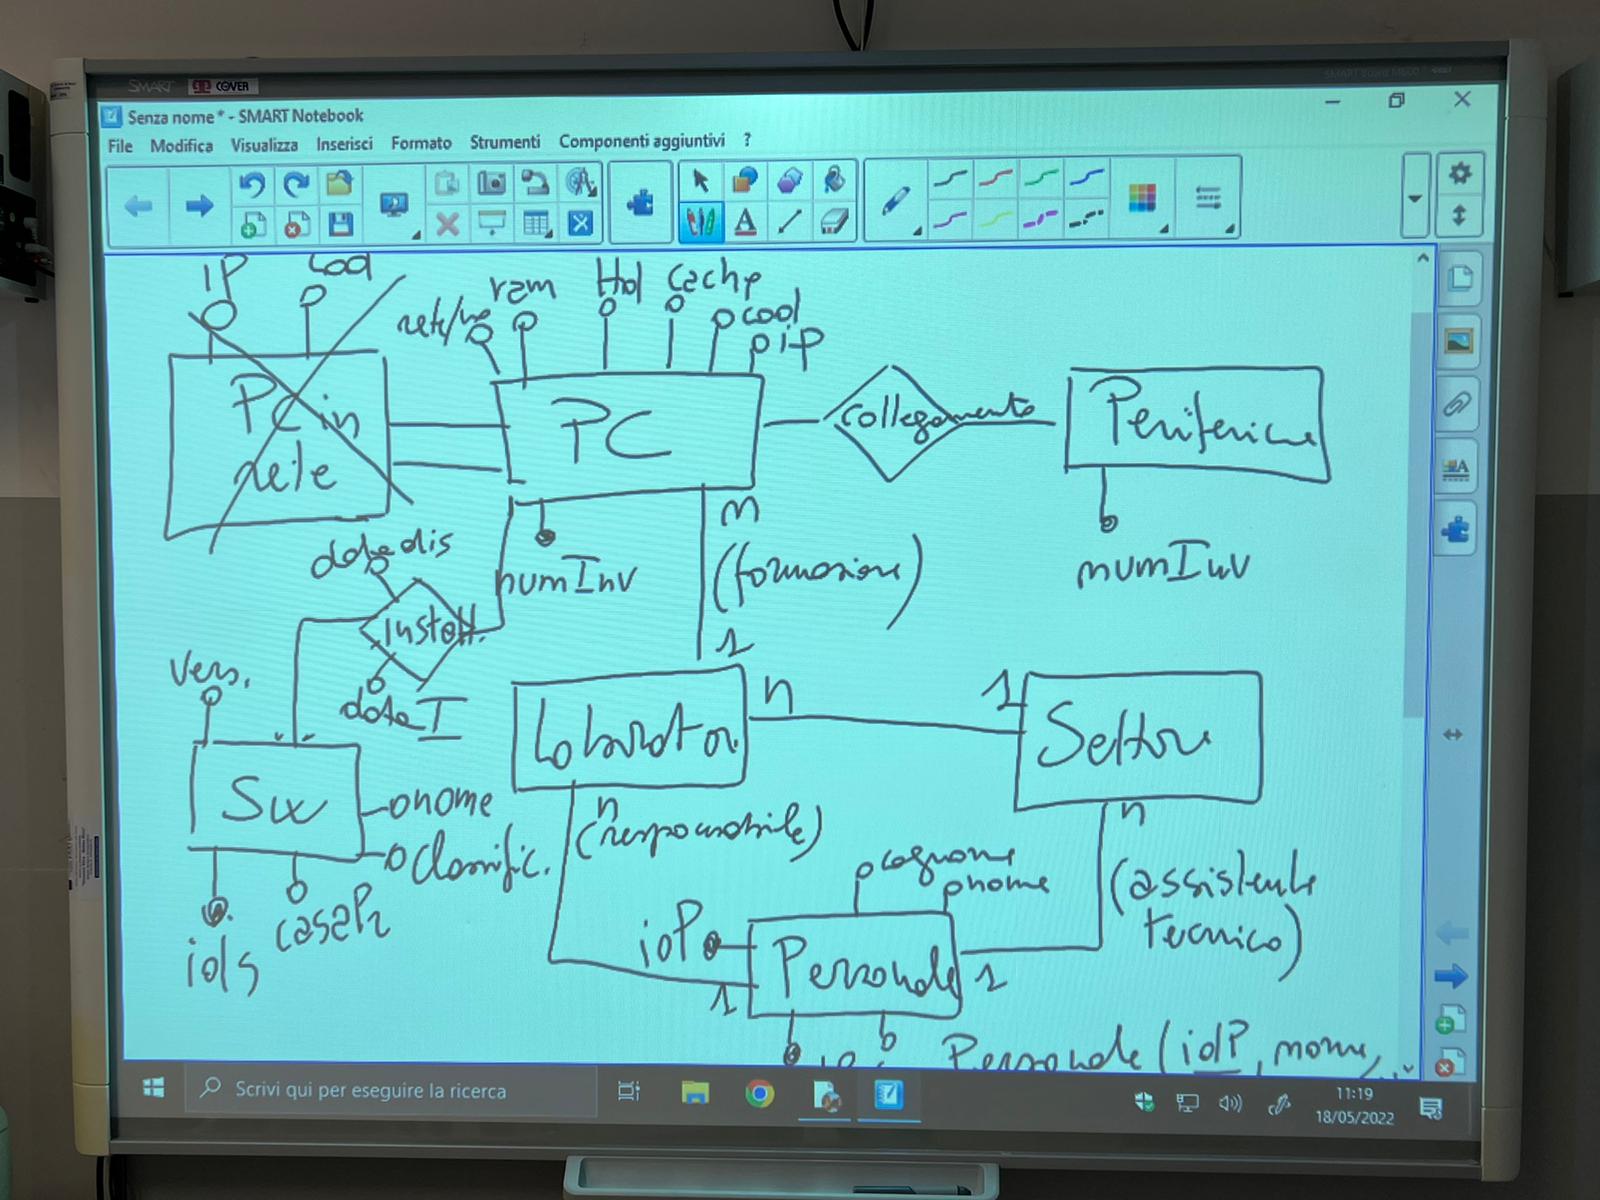 SMART COVER
Senza nome * - SMART Notebook
File Modifica Visualizza Inserisci Formato Strumenti Componenti aggiuntivi ?
IP cod
rete/no ram Hd Cache
cod
iP
PC in
rete
PC
collegamento
Periferiche
numInv
m
(formazione)
1
numInv
data dis
install.
data I
Vers.
Sw
nome
classific.
idS
casaPr
Laborator.
n
1
Settore
n
(responsabile)
n
(assistente
tecnico)
cognome
nome
idP
Personale
1
1
Personale (idP, nome,
Scrivi qui per eseguire la ricerca
11:19
18/05/2022